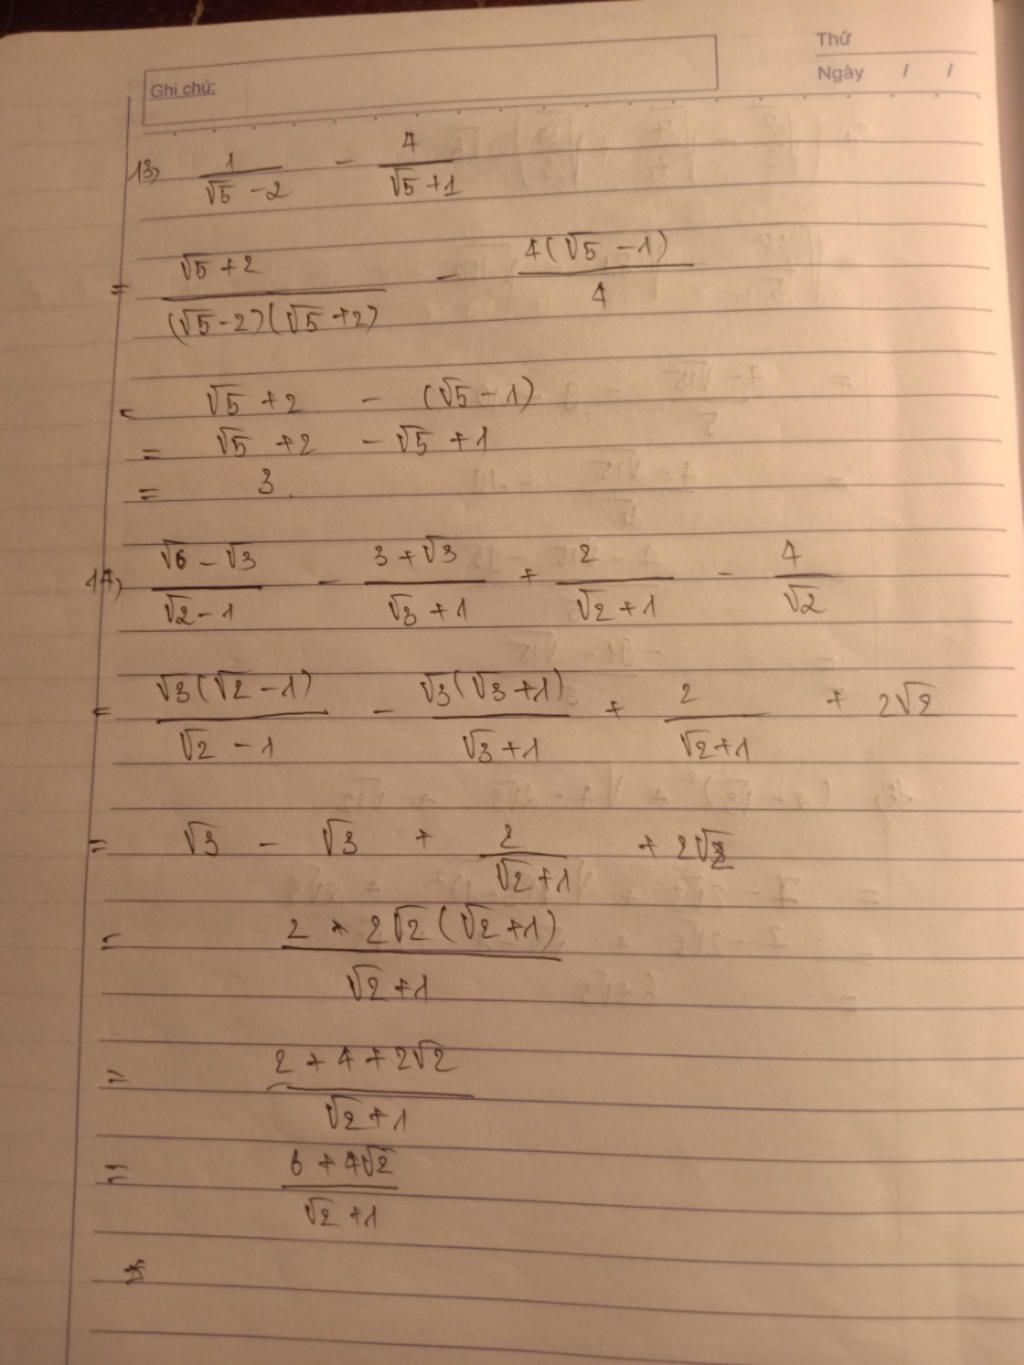 Thứ
Ghi chú:
Ngày / /
13) 1/(√5 -2) - 4/(√5 +1)
= (√5 +2)/((√5 -2)(√5 +2)) - 4(√5 -1)/4
= √5 +2 - (√5 -1)
= √5 +2 -√5 +1
= 3.
14) (√6 - √3)/(√2 -1) - (3 + √3)/(√3 +1) + 2/(√2 +1) - 4/√2
= √3(√2 -1)/(√2 -1) - √3(√3 +1)/(√3 +1) + 2/(√2 +1) + 2√2
= √3 - √3 + 2/(√2 +1) + 2√2
= (2 + 2√2(√2 +1))/(√2 +1)
= (2 + 4 + 2√2)/(√2 +1)
= (6 + 4√2)/(√2 +1)